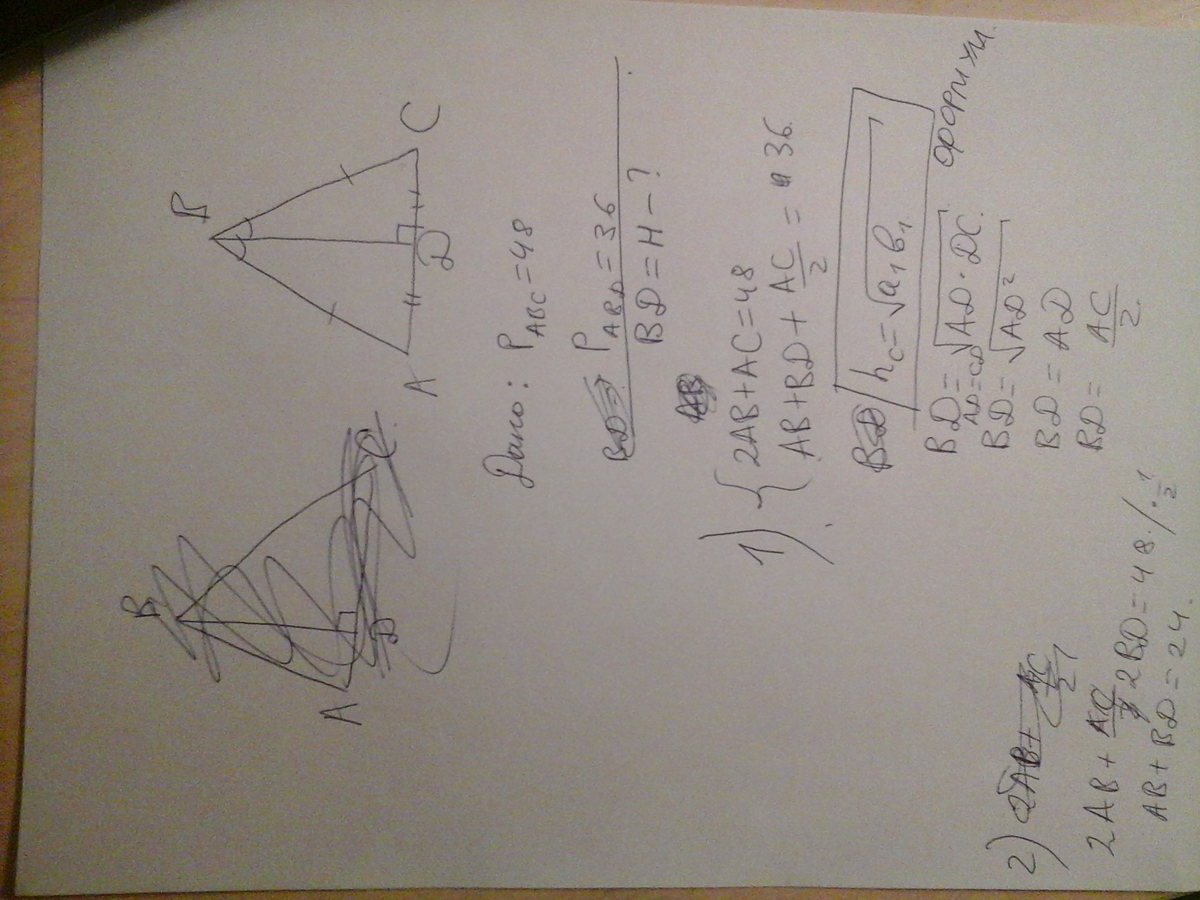 B
A
D
C
B
A
D
C
Дано: P_ABC=48
P_ABD=36
BD=H-?
1) { 2AB+AC=48
AB+BD+AC/2=36.
h_c=√a₁b₁
формули.
BD=√AD·DC.
AD=CD
BD=√AD²
BD=AD
BD=AC/2
2) 2AB+AC/2
2AB+2BD=48 /·1/2
AB+BD=24.